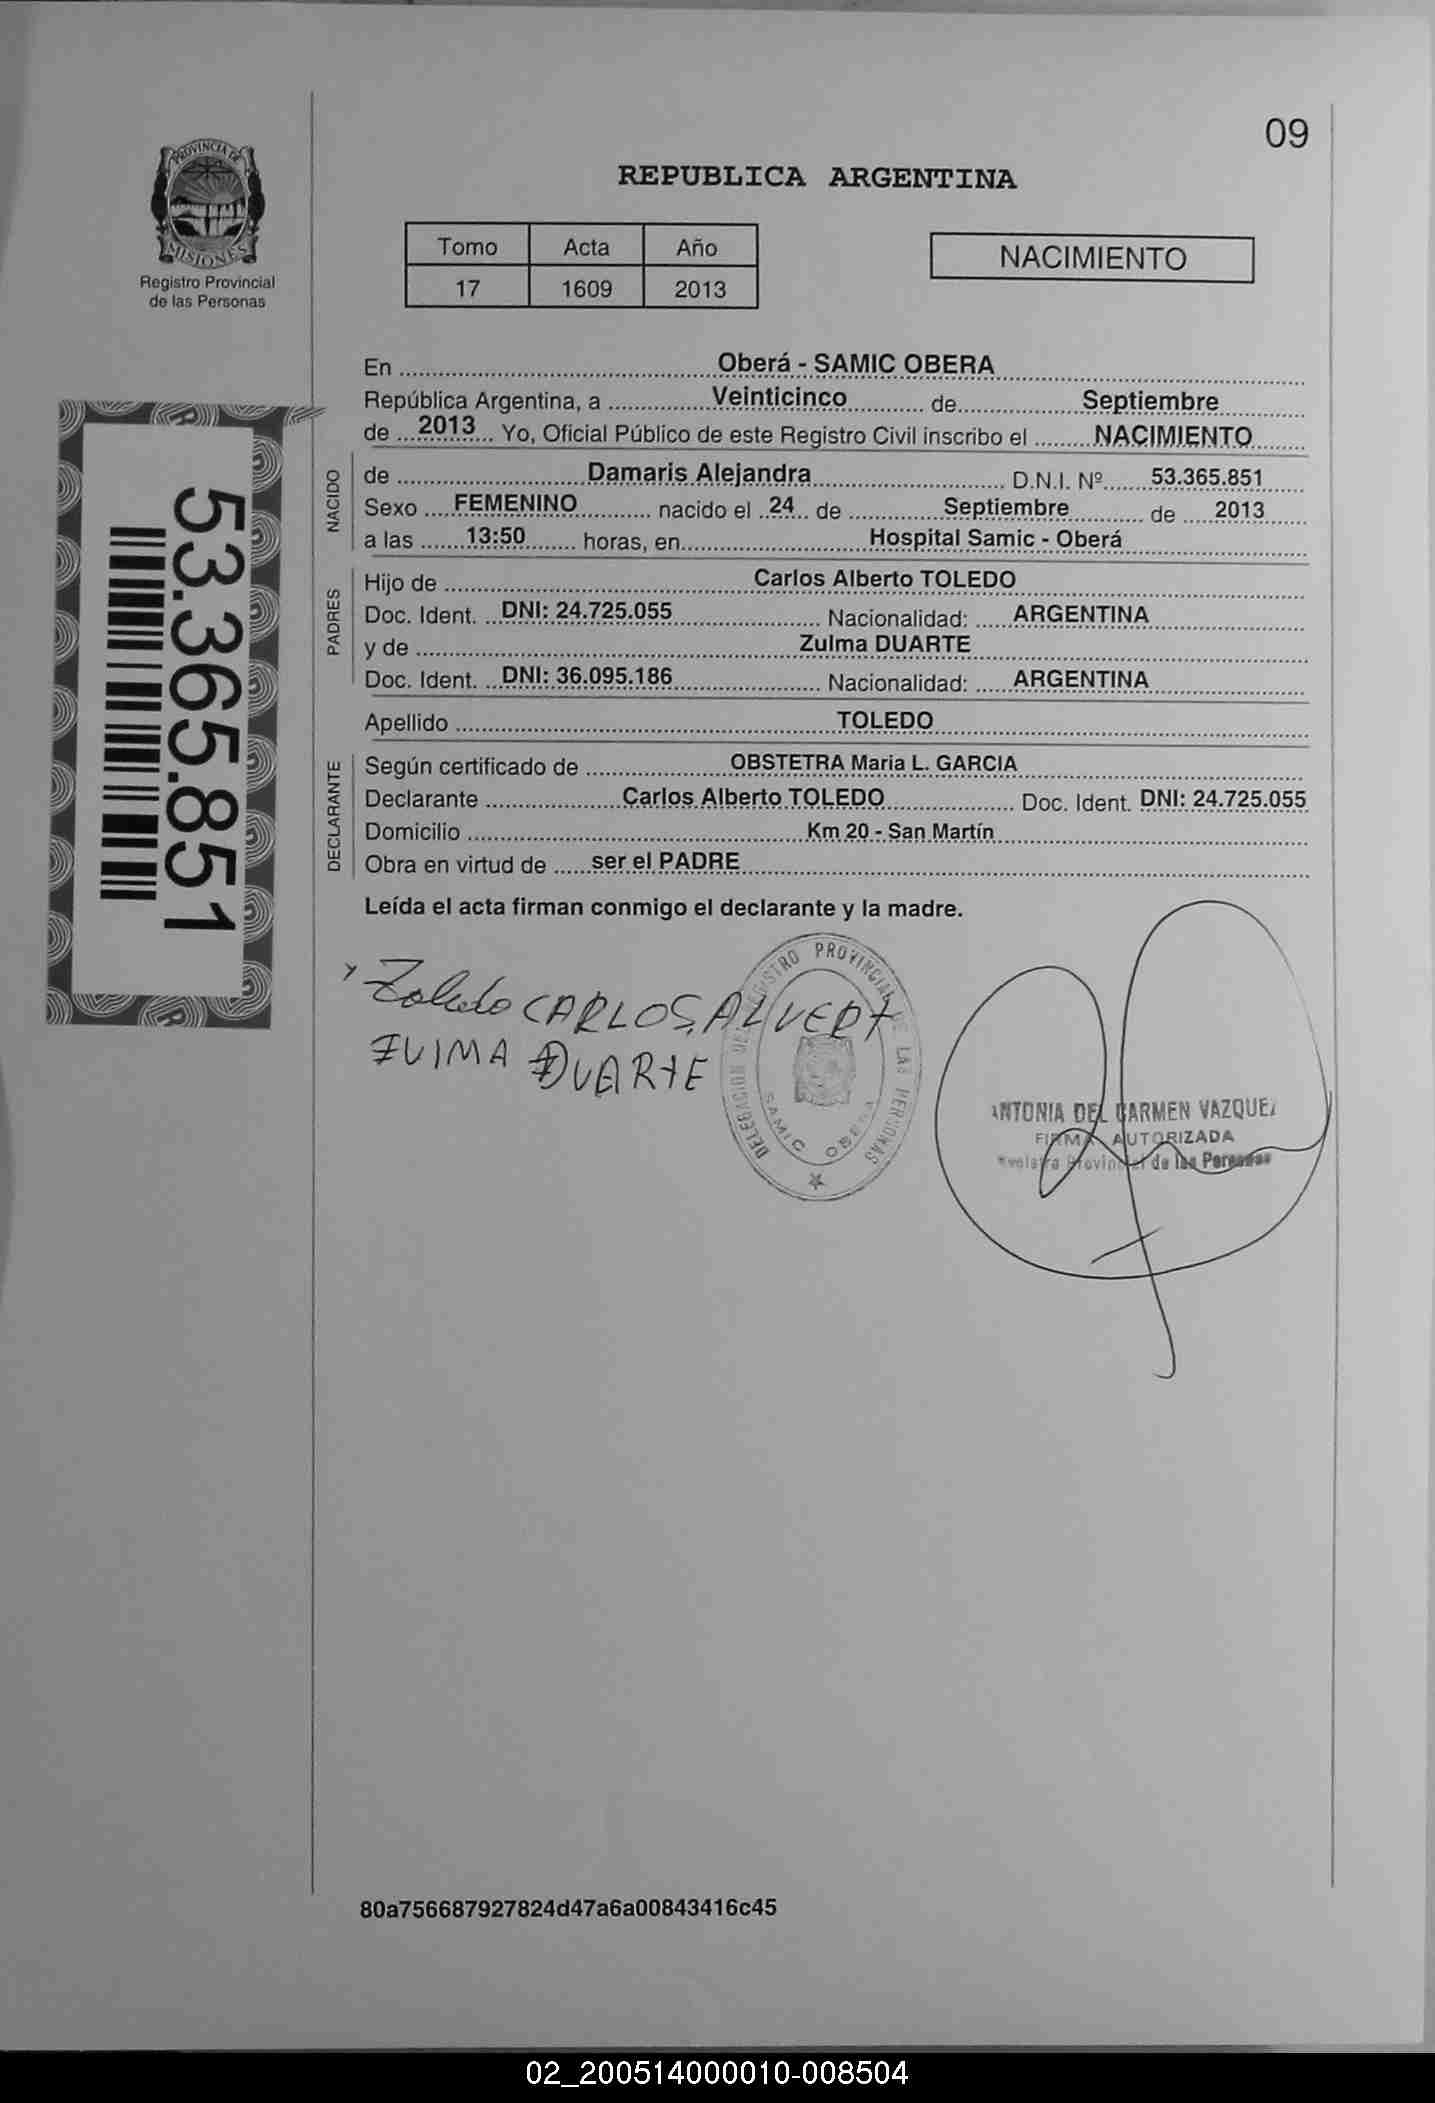 09
PROVINCIA DE
MISIONES
Registro Provincial
de las Personas
REPUBLICA ARGENTINA
Tomo Acta Año
17 1609 2013
NACIMIENTO
En Oberá - SAMIC OBERA
República Argentina, a Veinticinco de Septiembre
de 2013 Yo, Oficial Público de este Registro Civil inscribo el NACIMIENTO
NACIDO
de Damaris Alejandra D.N.I. Nº 53.365.851
Sexo FEMENINO nacido el 24 de Septiembre de 2013
a las 13:50 horas, en Hospital Samic - Oberá
PADRES
Hijo de Carlos Alberto TOLEDO
Doc. Ident. DNI: 24.725.055 Nacionalidad: ARGENTINA
y de Zulma DUARTE
Doc. Ident. DNI: 36.095.186 Nacionalidad: ARGENTINA
Apellido TOLEDO
DECLARANTE
Según certificado de OBSTETRA Maria L. GARCIA
Declarante Carlos Alberto TOLEDO Doc. Ident. DNI: 24.725.055
Domicilio Km 20 - San Martín
Obra en virtud de ser el PADRE
Leída el acta firman conmigo el declarante y la madre.
53.365.851
Toledo CARLOS ALVERT
ZUIMA DUARTE
DELEGACION DEL REGISTRO PROVINCIAL DE LAS PERSONAS
SAMIC OBERA
ANTONIA DEL CARMEN VAZQUEZ
FIRMA AUTORIZADA
Registro Provincial de las Personas
80a756687927824d47a6a00843416c45
02_200514000010-008504